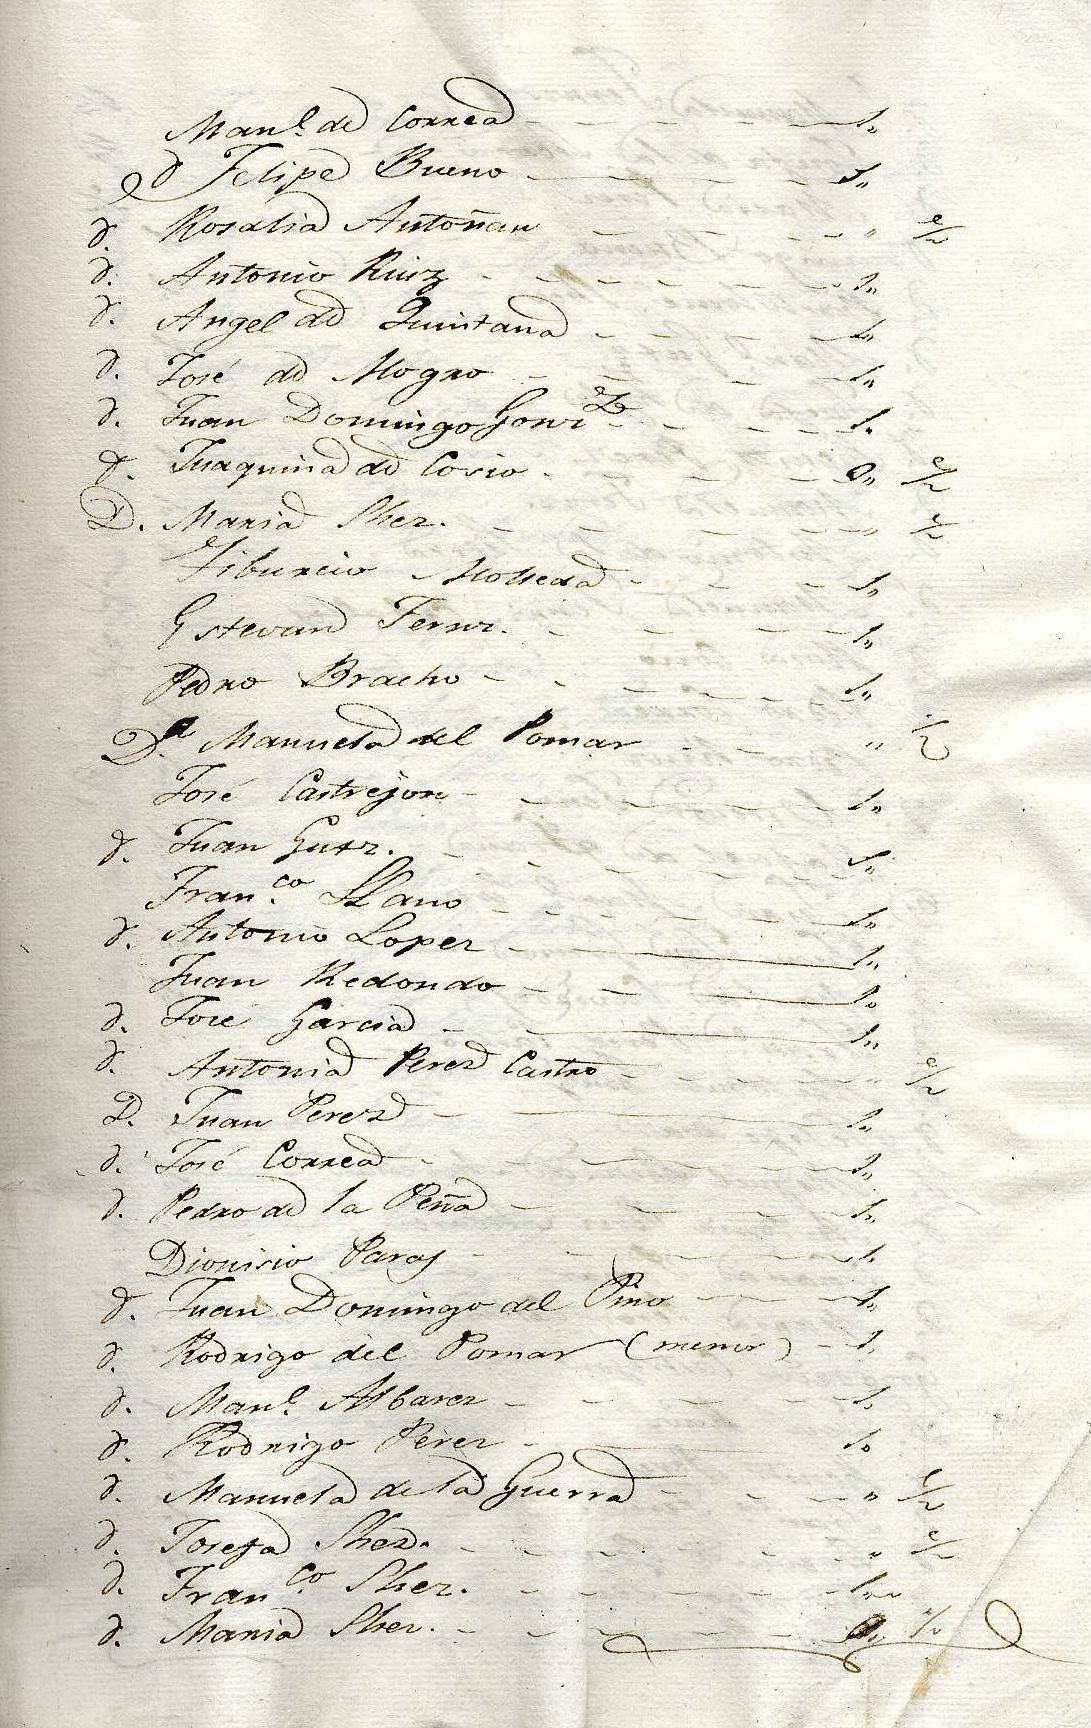 Man.l de Correa - - - - 1"
d Felipe Bueno - - - - 1"
d. Rosalia Antoñan - - - - " 1/2
d. Antonio Ruiz - - - - 1"
d. Angel de Quintana - - - - 1"
d. José de Mogro - - - - 1"
d. Juan Domingo Gonz - - - - 1"
d. Juaquina de Cosio - - - " 1/2
D. Maria Shez. - - - - " 1/2
Tiburcio Molleda - - - 1"
Estevan Fernz. - - - - 1"
Pedro Bracho - - - - 1"
D.a Manuela del Pomar - - - " 1/2
José Castrejon - - - - 1"
d. Juan Gutz. - - - - 1"
Fran.co LLano - - - - 1"
d. Antonio Lopez - - - 1"
Juan Redondo - - - - 1"
d. José Garcia - - - 1"
d. Antonia Perez Castro - - - - " 1/2
D. Juan Perez - - - - 1"
d. José Correa - - - - 1"
d. Pedro de la Peña - - - - 1"
Dionisio Paras - - - - 1"
d. Juan Domingo del Pino - - - 1"
d. Rodrigo del Pomar (menor) - 1"
d. Man.l Albarez - - - - 1"
d. Rodrigo Perez - - - - 1"
d. Manuela de la Guerra - - - - " 1/2
d. Josefa Shez. - - - - " 1/2
d. Fran.co Shez. - - - - 1"
d. Maria Shez. - - - - " 1/2